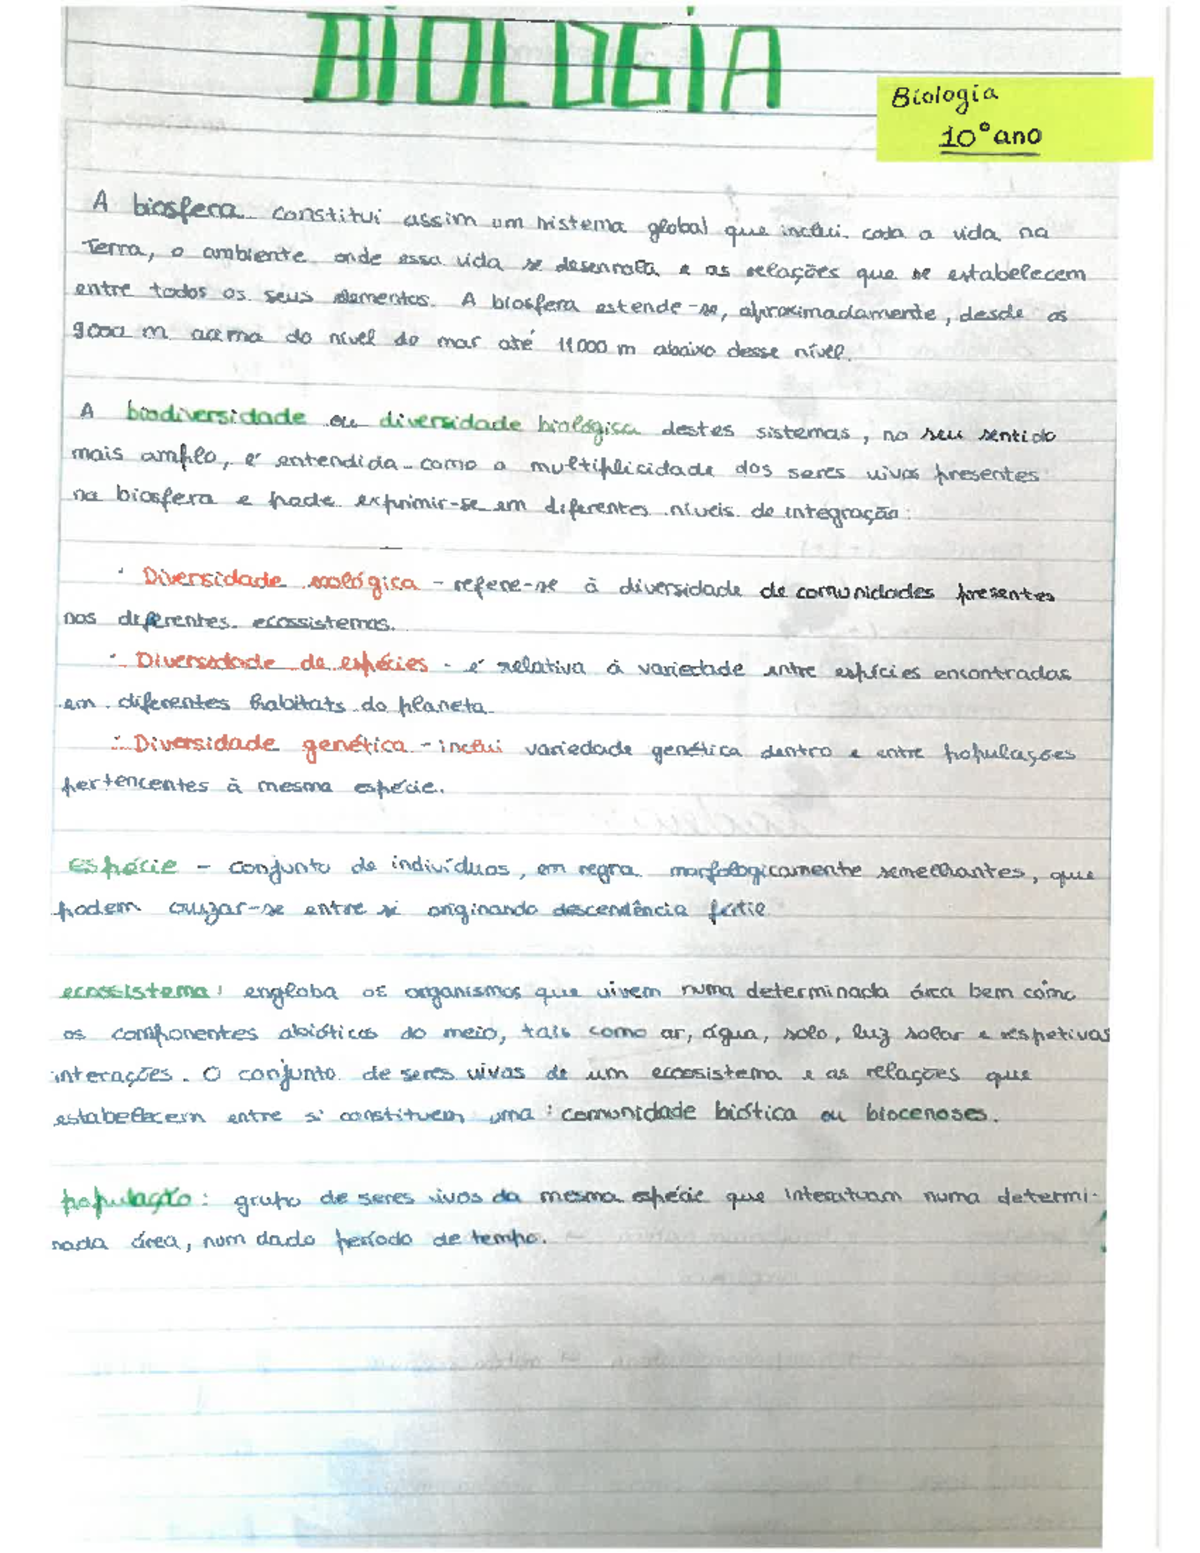 BIOLOGIA
Biologia
10º ano
A biosfera constitui assim um sistema global que inclui toda a vida na
Terra, o ambiente onde essa vida se desenrola e as relações que se estabelecem
entre todos os seus elementos. A biosfera estende-se, aproximadamente, desde os
9000 m acima do nível do mar até 11000 m abaixo desse nível.
A biodiversidade ou diversidade biológica destes sistemas, no seu sentido
mais amplo, é entendida como a multiplicidade dos seres vivos presentes
na biosfera e pode exprimir-se em diferentes níveis de integração:
· Diversidade ecológica - refere-se à diversidade de comunidades presentes
nos diferentes ecossistemas.
· Diversidade de espécies - é relativa à variedade entre espícies encontradas
em diferentes habitats do planeta
· Diversidade genética - inclui variedade genética dentro e entre populações
pertencentes à mesma espécie.
espécie - conjunto de indivíduos, em regra morfologicamente semelhantes, que
podem cruzar-se entre si originando descendência fértil
ecossistema: engloba os organismos que vivem numa determinada área bem como
os componentes abióticos do meio, tais como ar, água, solo, luz solar e respetivas
interações. O conjunto de seres vivos de um ecossistema e as relações que
estabelecem entre si constituem uma: comunidade biótica ou biocenoses.
população: grupo de seres vivos da mesma espécie que interatuam numa determi-
nada área, num dado período de tempo.